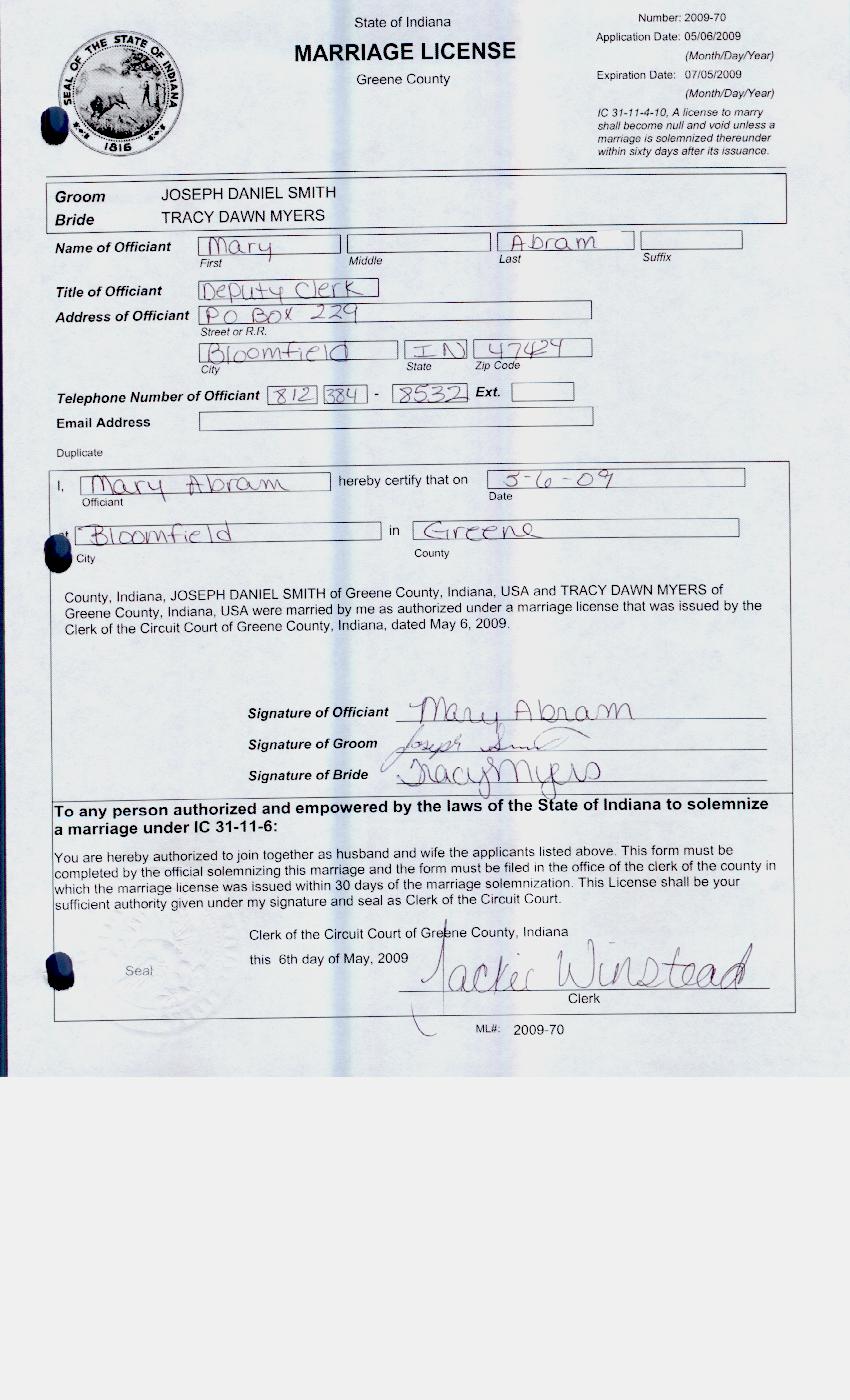 State of Indiana
MARRIAGE LICENSE
Greene County
Number: 2009-70
Application Date: 05/06/2009
(Month/Day/Year)
Expiration Date: 07/05/2009
(Month/Day/Year)
IC 31-11-4-10, A license to marry
shall become null and void unless a
marriage is solemnized thereunder
within sixty days after its issuance.
SEAL OF THE STATE OF INDIANA
1816
Groom JOSEPH DANIEL SMITH
Bride TRACY DAWN MYERS
Name of Officiant Mary Abram
First Middle Last Suffix
Title of Officiant Deputy Clerk
Address of Officiant PO Box 229
Street or R.R.
Bloomfield IN 47424
City State Zip Code
Telephone Number of Officiant 812 384 - 8532 Ext.
Email Address
Duplicate
I, Mary Abram hereby certify that on 5-6-09
Officiant Date
at Bloomfield in Greene
City County
County, Indiana, JOSEPH DANIEL SMITH of Greene County, Indiana, USA and TRACY DAWN MYERS of
Greene County, Indiana, USA were married by me as authorized under a marriage license that was issued by the
Clerk of the Circuit Court of Greene County, Indiana, dated May 6, 2009.
Signature of Officiant Mary Abram
Signature of Groom Joseph Smith
Signature of Bride Tracy Myers
To any person authorized and empowered by the laws of the State of Indiana to solemnize
a marriage under IC 31-11-6:
You are hereby authorized to join together as husband and wife the applicants listed above. This form must be
completed by the official solemnizing this marriage and the form must be filed in the office of the clerk of the county in
which the marriage license was issued within 30 days of the marriage solemnization. This License shall be your
sufficient authority given under my signature and seal as Clerk of the Circuit Court.
Clerk of the Circuit Court of Greene County, Indiana
this 6th day of May, 2009 Jackie Winstead
Seal
Clerk
ML#: 2009-70